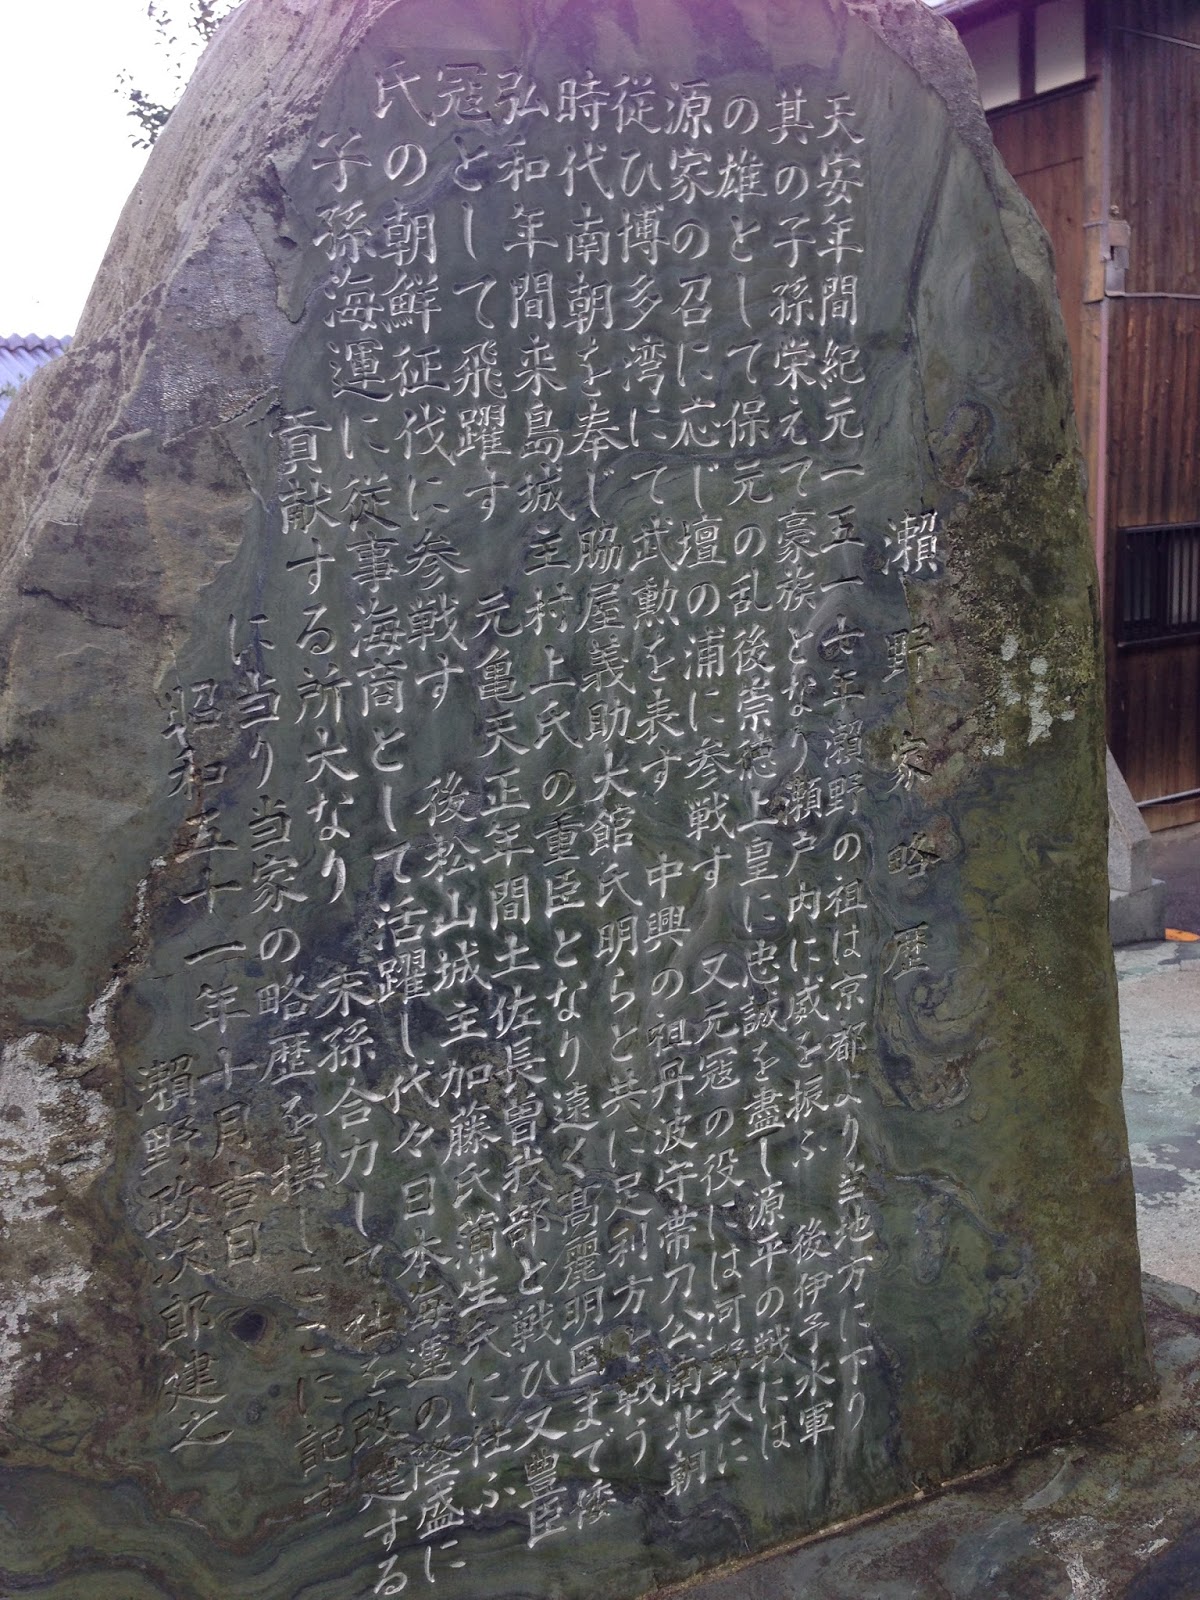 瀬野家略歴
天安年間紀元一五一六年瀬野の祖は京都より当地方に下り
其の子孫栄えて豪族となり瀬戸内に威を振ふ　後伊予水軍
の雄として保元の乱後崇徳上皇に忠誠を盡し源平の戦には
源家の召に応じ壇の浦に参戦す　又元冦の役には河野氏に
従ひ博多湾にて武勲を表す　中興の祖丹波守帯刀公南北朝
時代南朝を奉じ脇屋義助大館氏明らと共に足利方と戦う
弘和年間来島城主村上氏の重臣となり遠く髙麗明国まで倭
冦として飛躍す　元亀天正年間土佐長曽我部と戦ひ又豊臣
氏の朝鮮征伐に参戦す　後松山城主加藤氏蒲生氏に仕ふ
子孫海運に従事海商として活躍し代々日本海運の隆盛に
貢献する所大なり　末孫合力して社を改建する
に当り当家の略歴を撰しここに記す
昭和五十一年十月吉日
瀬野政次郎建之